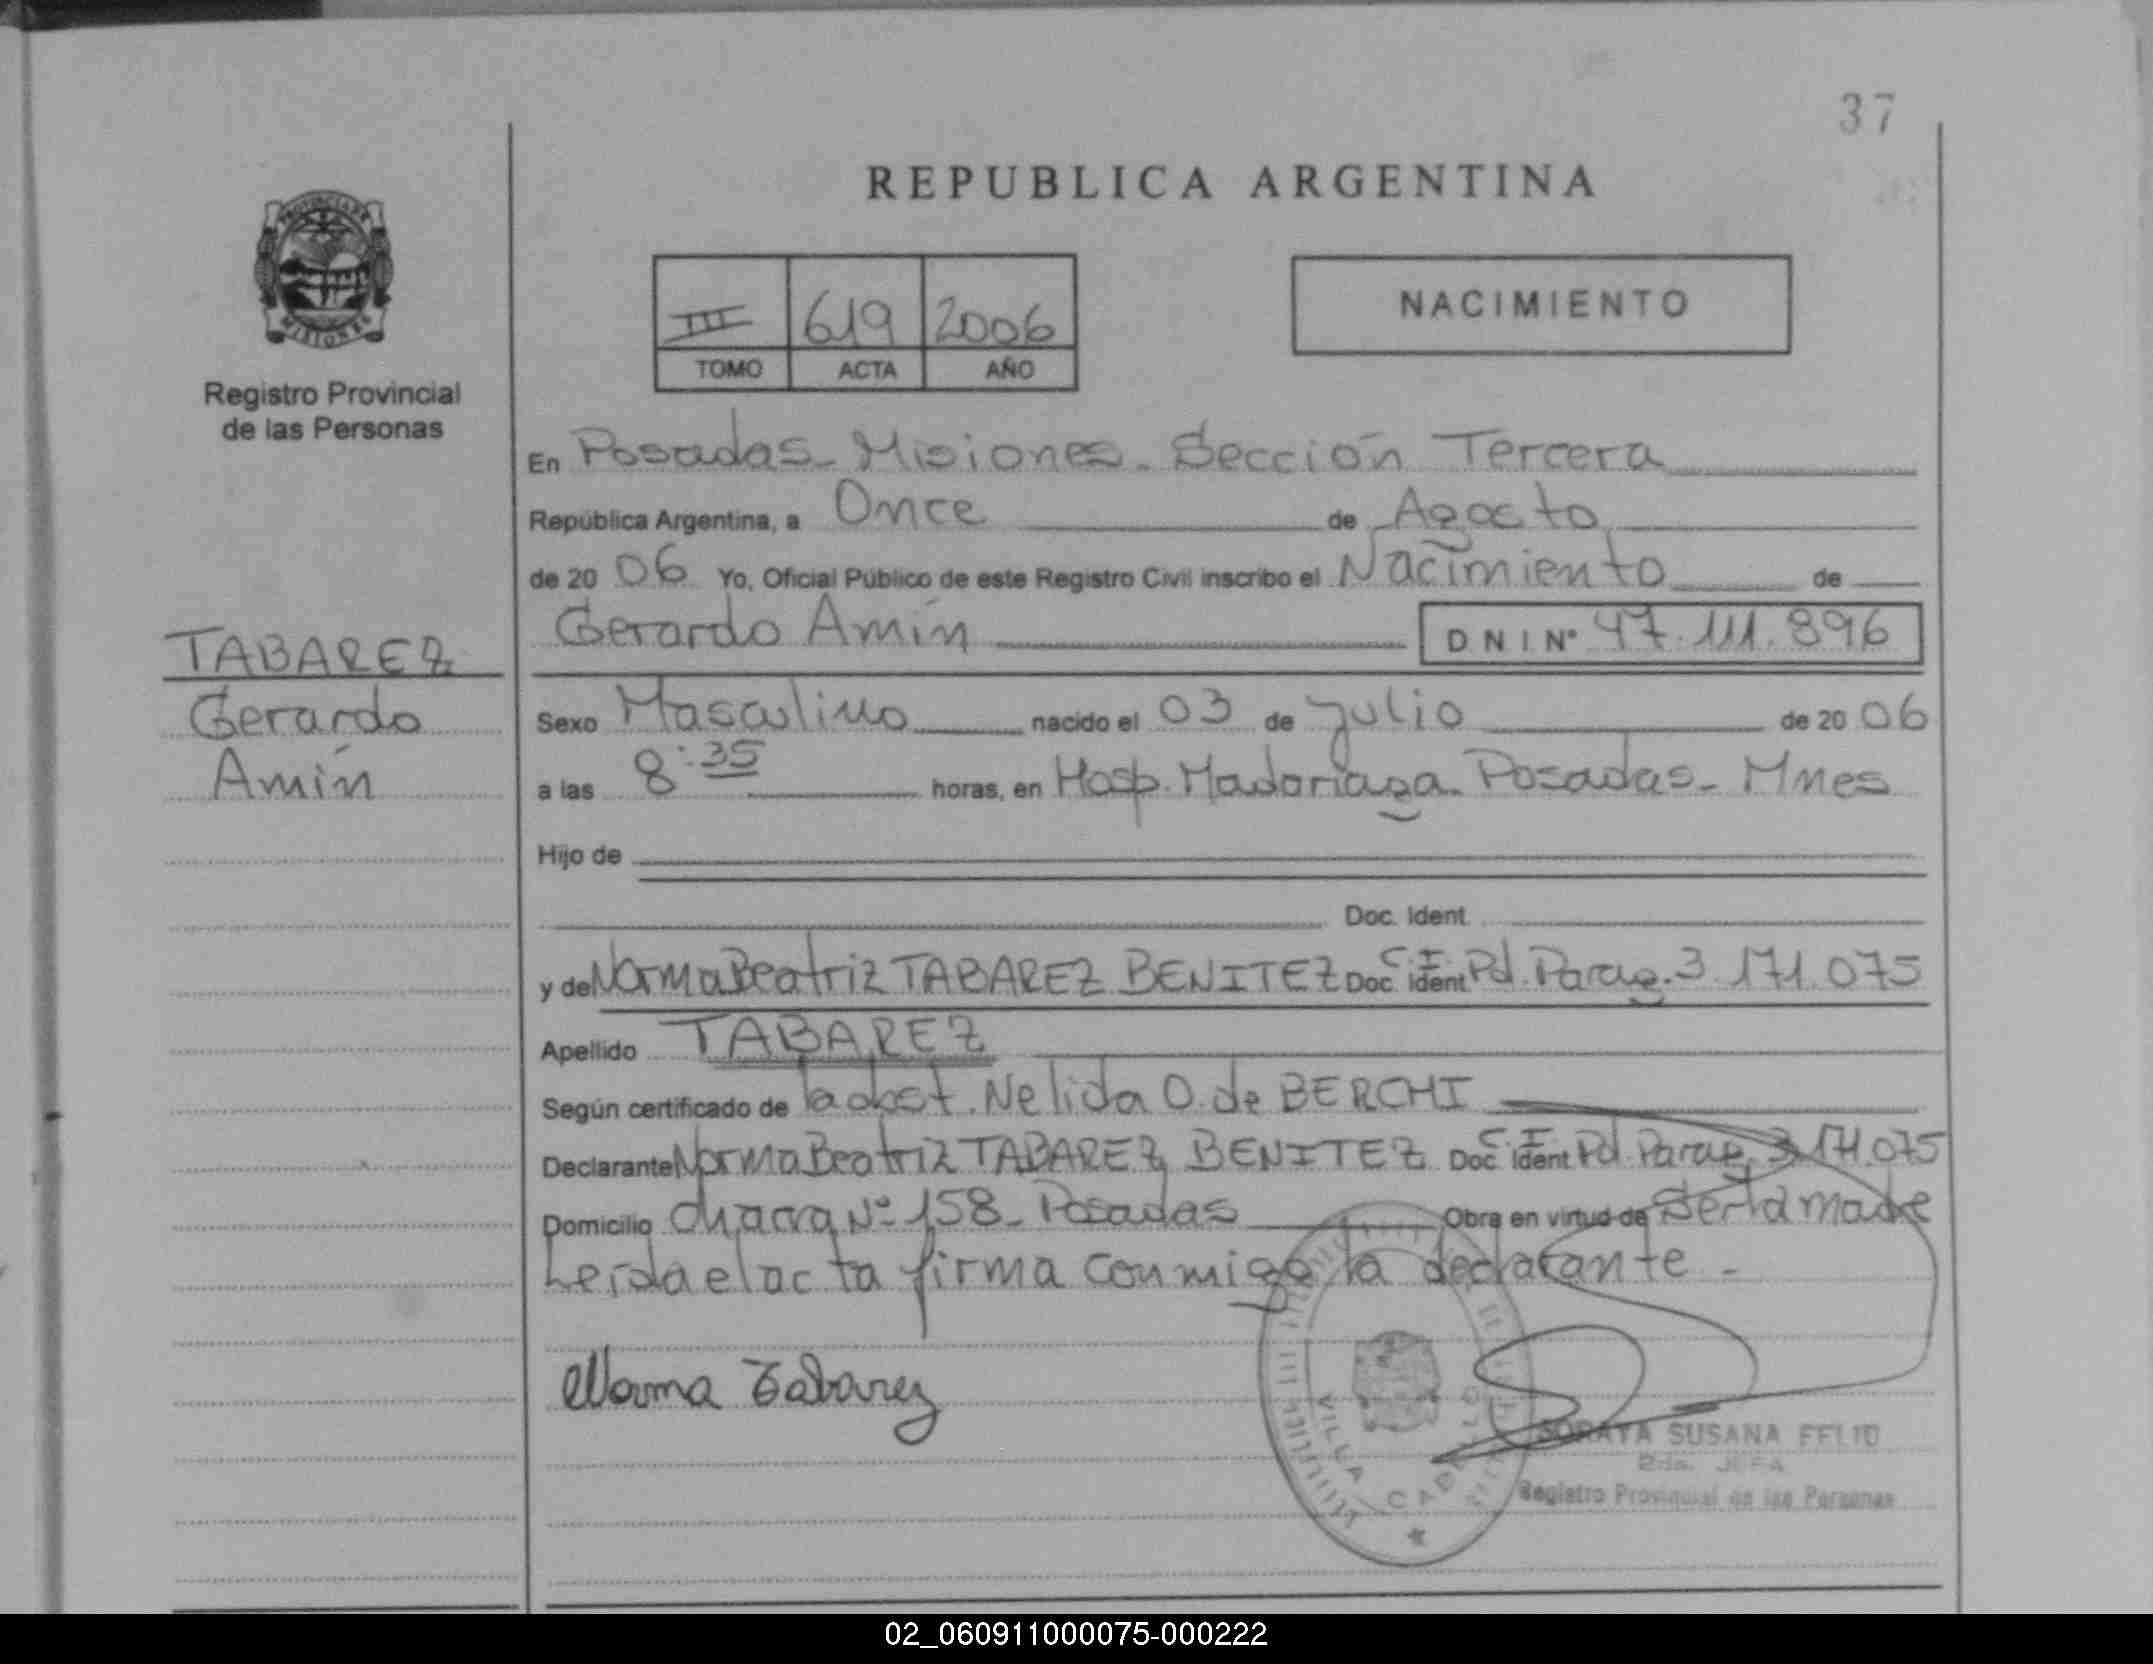 37
REPUBLICA ARGENTINA
PROVINCIA DE
MISIONES
Registro Provincial
de las Personas
III 619 2006
TOMO ACTA AÑO
NACIMIENTO
En Posadas - Misiones - Sección Tercera
República Argentina, a Once de Agosto
de 2006 Yo, Oficial Público de este Registro Civil inscribo el Nacimiento de
Gerardo Amín DNI Nº 47.111.896
TABAREZ
Gerardo
Amín
Sexo Masculino nacido el 03 de julio de 2006
a las 8:35 horas, en Hosp. Madariaga - Posadas - Mnes
Hijo de
Doc. Ident
y de Norma Beatriz TABAREZ BENITEZ Doc. Ident C.I. Pd. Parag. 3.171.075
Apellido TABAREZ
Según certificado de la obst. Nelida O. de BERCHI
Declarante Norma Beatriz TABAREZ BENITEZ Doc. Ident C.I. Pd. Parag. 3.171.075
Domicilio Chacra Nº 158 - Posadas Obra en virtud de Ser la madre
Leída el acta firma conmigo la declarante -
Norma Tabarez
VILLA CABELLO
SORAYA SUSANA FELIU
JEFA
Registro Provincial de las Personas
02_060911000075-000222